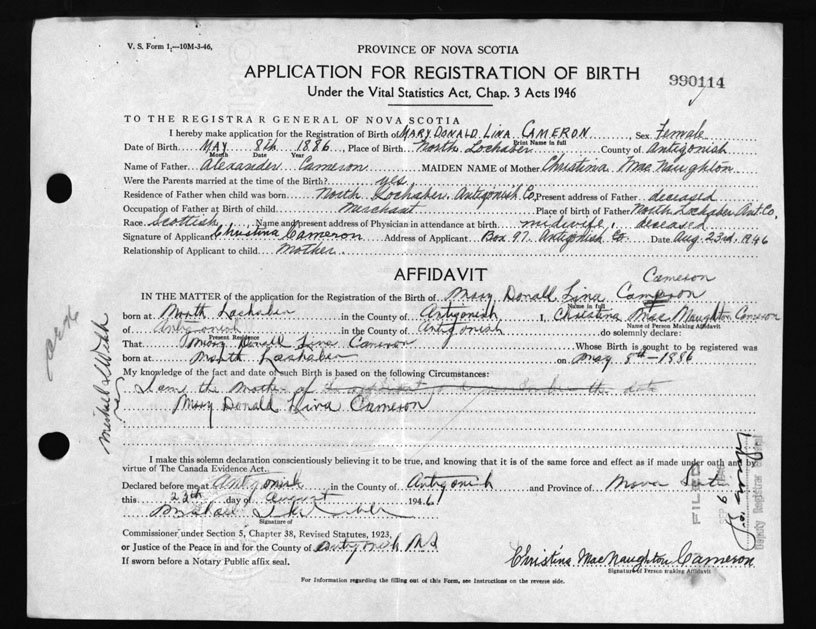 V. S. Form 1,—10M-3-46,
PROVINCE OF NOVA SCOTIA
APPLICATION FOR REGISTRATION OF BIRTH
990114
Under the Vital Statistics Act, Chap. 3 Acts 1946
TO THE REGISTRAR GENERAL OF NOVA SCOTIA
I hereby make application for the Registration of Birth of MARY DONALD LINA CAMERON, Sex Female
Print Name in full
Date of Birth MAY 8th 1886, Place of Birth North Lochaber County of Antigonish
Month Date Year
Name of Father Alexander Cameron MAIDEN NAME of Mother Christina MacNaughton
Were the Parents married at the time of the Birth? yes
Residence of Father when child was born North Lochaber, Antigonish Co, Present address of Father deceased
Occupation of Father at Birth of child Merchant Place of birth of Father North Lochaber Ant. Co,
Race Scottish Name and present address of Physician in attendance at birth midwife, deceased
Signature of Applicant Christina Cameron Address of Applicant Box 97, Antigonish Co. Date Aug. 23rd, 1946
Relationship of Applicant to child Mother
AFFIDAVIT
Cameron
IN THE MATTER of the application for the Registration of the Birth of Mary Donald Lina
Name in full
born at North Lashaber in the County of Antigonish I, Christina Mac Naughton Cameron
Name of Person Making Affidavit
of Antigonish in the County of Antigonish do solemnly declare:
Present Residence
That Mary Donald Lina Cameron Whose Birth is sought to be registered was
born at North Lashaber on May 8th — 1886
My knowledge of the fact and date of such Birth is based on the following Circumstances:
I am the Mother of
Mary Donald Lina Cameron
I make this solemn declaration conscientiously believing it to be true, and knowing that it is of the same force and effect as if made under oath and by
virtue of The Canada Evidence Act.
Declared before me at Antigonish in the County of Antigonish and Province of Nova Scotia
this 23th day of August 1946
Michael
Signature of
Commissioner under Section 5, Chapter 38, Revised Statutes, 1923,
or Justice of the Peace in and for the County of Antigonish N.S
If sworn before a Notary Public affix seal.
Christina MacNaughton Cameron
Signature of Person making Affidavit
For Information regarding the filling out of this Form, see Instructions on the reverse side.
FILED
Deputy Registrar General